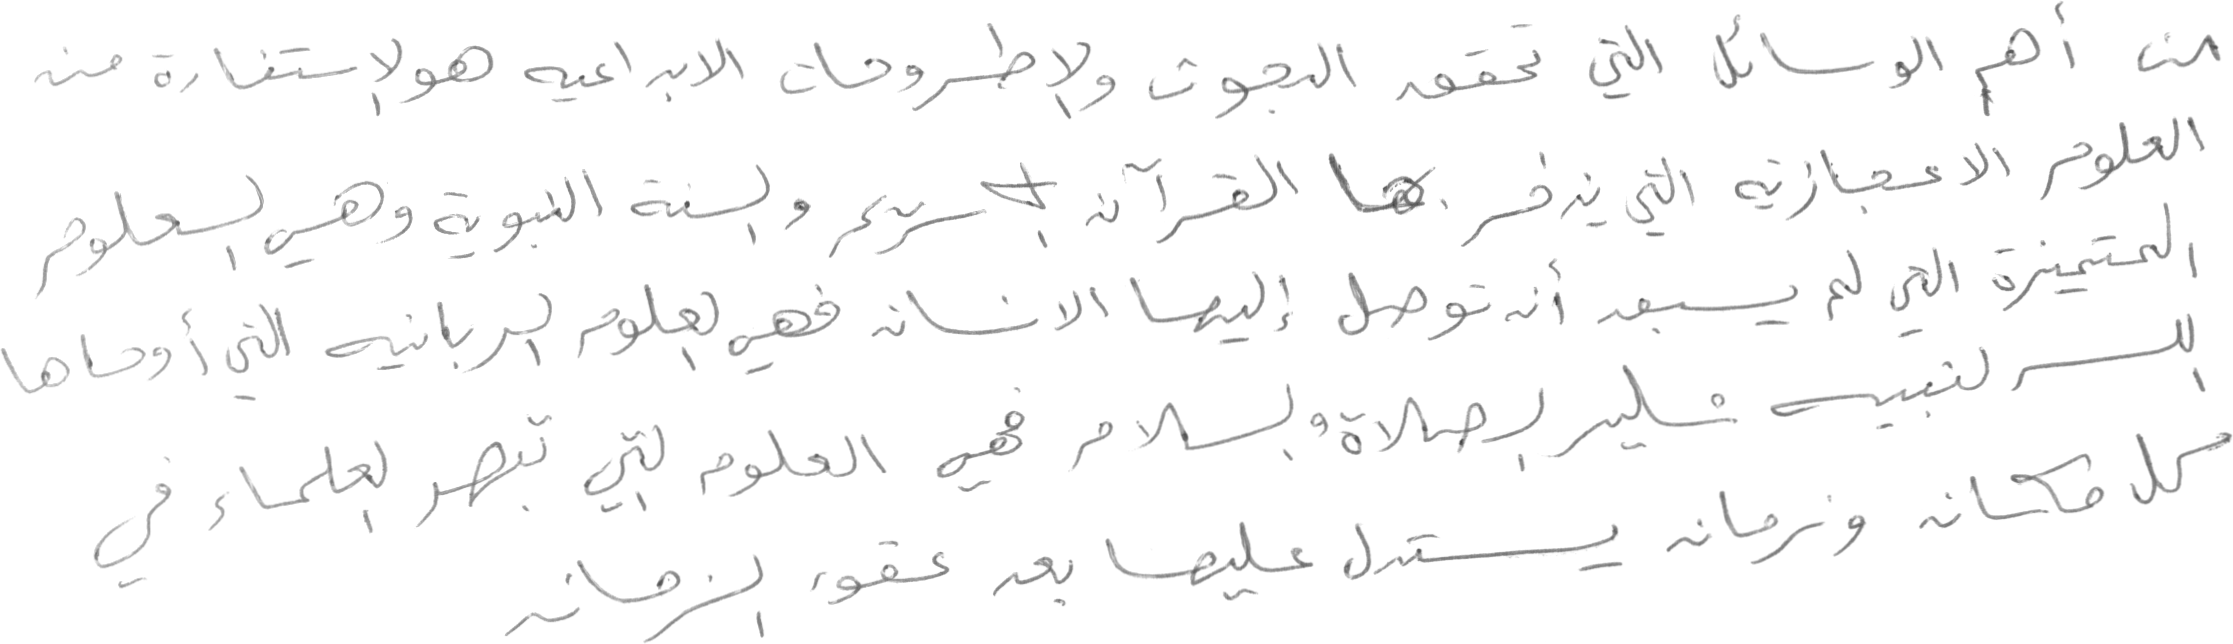 من أهم الوسائل التي تحقق البحوث والإطروحات الابداعيه هو الإستفادة من
العلوم الاعجازيه التي يزخر بها القرآن الكريم والسنة النبوية وهي العلوم
المتميزة التي لم يسبق أن توصل إليها الانسان فهي العلوم الربانيه التي أوحاها
الله لنبيه عليه الصلاة والسلام فهي العلوم التي تبهر العلماء في
كل مكان وزمان يستدل عليها بعد عقود الزمان